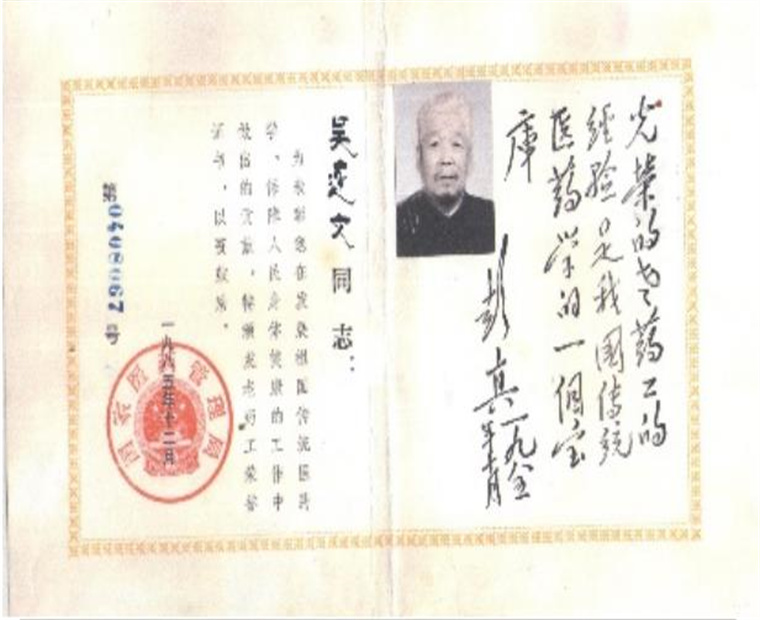 光荣的老药工的
经验是我國传统
医药学的一個宝
库
彭真一九八五
年
吴文同志：
为表彰您在发展祖国传统医药
学、保障人民身体健康的工作中
做出的贡献，特颁发老药工荣誉
证书，以资鼓励。
一九八五年十二月
国家医药管理局
第0408067号